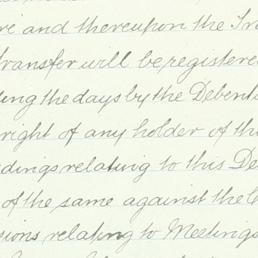 re and thereupon the Tra
transfer will be registere
ing the days by the Debent
right of any holder of the
edings relating to this De
of the same against the C
sions relating to Meetings